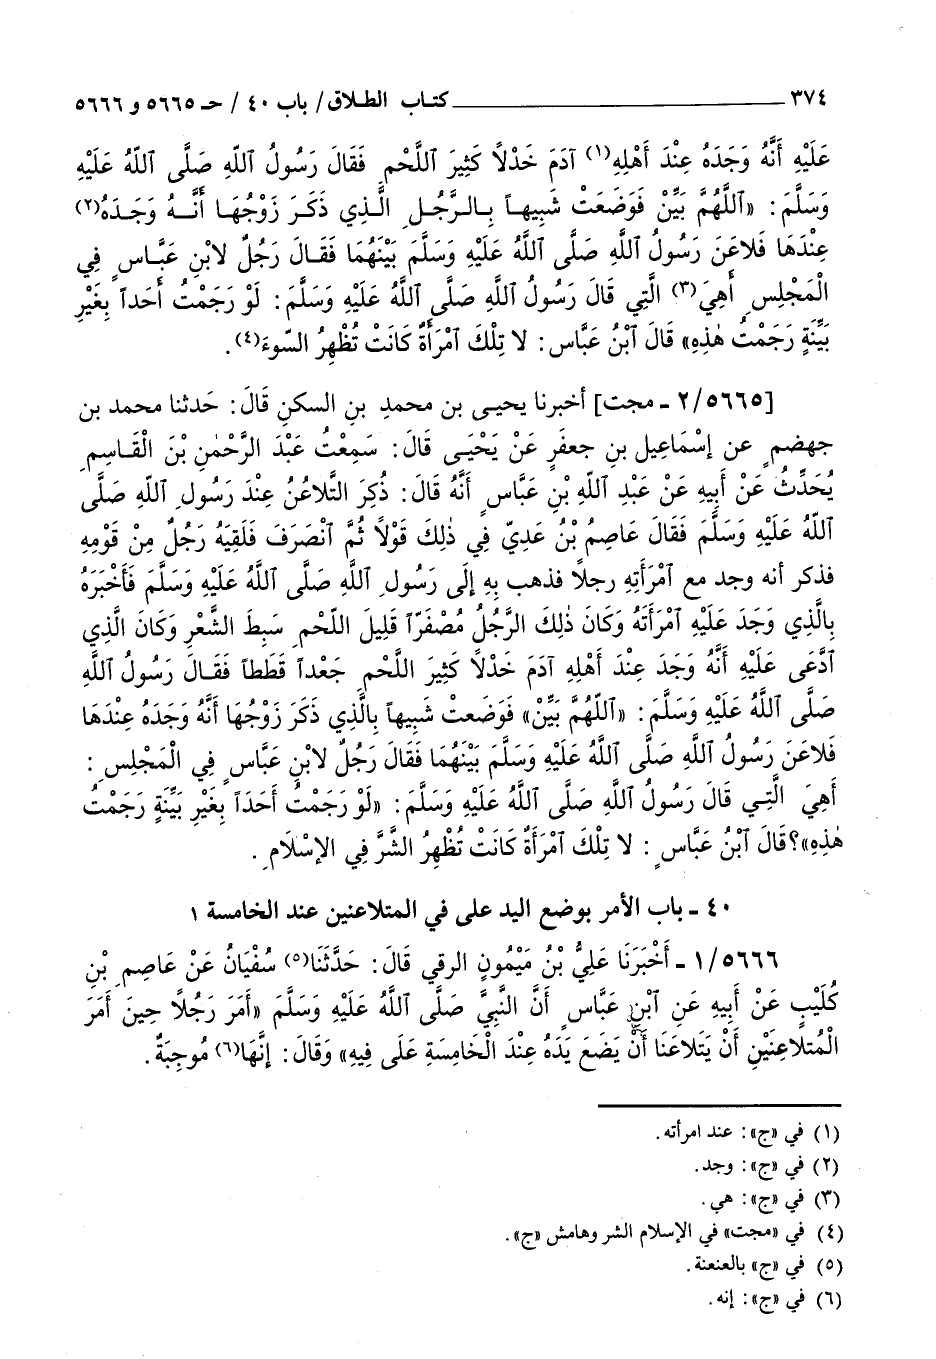 ٣٧٤ ــــــــــــــــــــــــــــــــــــ كتاب الطلاق/ باب ٤٠/ حـ ٥٦٦٥ و ٥٦٦٦
عَلَيْهِ أَنَّهُ وَجَدَهُ عِنْدَ أَهْلِهِ(١) آدَمَ خَدْلاً كَثِيرَ ٱللَّحْمِ فَقَالَ رَسُولُ ٱللّٰهِ صَلَّى ٱللّٰهُ عَلَيْهِ
وَسَلَّمَ: «ٱللَّهُمَّ بَيِّنْ فَوَضَعَتْ شَبِيهاً بِالرَّجُلِ الَّذِي ذَكَرَ زَوْجُهَا أَنَّهُ وَجَدَهُ(٢)
عِنْدَهَا فَلاعَنَ رَسُولُ ٱللّٰهِ صَلَّى ٱللّٰهُ عَلَيْهِ وَسَلَّمَ بَيْنَهُمَا فَقَالَ رَجُلٌ لابْنِ عَبَّاسٍ فِي
الْمَجْلِسِ أَهِيَ(٣) الَّتِي قَالَ رَسُولُ ٱللّٰهِ صَلَّى ٱللّٰهُ عَلَيْهِ وَسَلَّمَ: لَوْ رَجَمْتُ أَحَداً بِغَيْرِ
بَيِّنَةٍ رَجَمْتُ هٰذِهِ» قَالَ ٱبْنُ عَبَّاسٍ: لا تِلْكَ ٱمْرَأَةٌ كَانَتْ تُظْهِرُ السّوءَ(٤).
[٢/٥٦٦٥ ـ مجت] أخبرنا يحيى بن محمدِ بنِ السكنِ قَالَ: حَدثنا محمد بن
جهضمٍ عن إسْمَاعيل بنِ جعفَرٍ عَنْ يَحْيَى قَالَ: سَمِعْتُ عَبْدَ الرَّحْمٰنِ بْنَ الْقَاسِمِ
يُحَدِّثُ عَنْ أَبِيهِ عَنْ عَبْدِ ٱللّٰهِ بْنِ عَبَّاسٍ أَنَّهُ قَالَ: ذُكِرَ التَّلاعُنُ عِنْدَ رَسُولِ ٱللّٰهِ صَلَّى
ٱللّٰهُ عَلَيْهِ وَسَلَّمَ فَقَالَ عَاصِمُ بْنُ عَدِيّ فِي ذٰلِكَ قَوْلاً ثُمَّ ٱنْصَرَفَ فَلَقِيَهُ رَجُلٌ مِنْ قَوْمِهِ
فذكر أنه وجد مع ٱمْرَأَتِهِ رجلاً فذهب بِهِ إِلَى رَسُولِ ٱللّٰهِ صَلَّى ٱللّٰهُ عَلَيْهِ وَسَلَّمَ فَأَخْبَرَهُ
بِالَّذِي وَجَدَ عَلَيْهِ ٱمْرَأَتَهُ وَكَانَ ذٰلِكَ الرَّجُلُ مُصْفَرّاً قَلِيلَ اللّحْمِ سَبِطَ الشَّعْرِ وَكَانَ الَّذِي
ٱدَّعَى عَلَيْهِ أَنَّهُ وَجَدَ عِنْدَ أَهْلِهِ آدَمَ خَدْلاً كَثِيرَ اللَّحْمِ جَعْداً قَطَطاً فَقَالَ رَسُولُ ٱللّٰهِ
صَلَّى ٱللّٰهُ عَلَيْهِ وَسَلَّمَ: «ٱللّٰهُمَّ بَيِّنْ» فَوَضَعتْ شَبِيهاً بِالَّذِي ذَكَرَ زَوْجُهَا أَنَّهُ وَجَدَهُ عِنْدَهَا
فَلاعَنَ رَسُولُ ٱللّٰهِ صَلَّى ٱللّٰهُ عَلَيْهِ وَسَلَّمَ بَيْنَهُمَا فَقَالَ رَجُلٌ لابْنِ عَبَّاسٍ فِي الْمَجْلِسِ:
أَهِيَ الَّتِي قَالَ رَسُولُ ٱللّٰهِ صَلَّى ٱللّٰهُ عَلَيْهِ وَسَلَّمَ: «لَوْ رَجَمْتُ أَحَدَاً بِغَيْرِ بَيِّنَةٍ رَجَمْتُ
هٰذِهِ»؟ قَالَ ٱبْنُ عَبَّاسٍ: لا تِلْكَ ٱمْرَأَةٌ كَانَتْ تُظْهِرُ الشَّرَّ فِي الإِسْلَامِ.
٤٠ ـ باب الأمر بوضع اليد على في المتلاعنين عند الخامسة ١
١/٥٦٦٦ ـ أَخْبَرَنَا عَلِيُّ بْنُ مَيْمُونٍ الرقي قَالَ: حَدَّثَنَا(٥) سُفْيَانُ عَنْ عَاصِمِ بْنِ
كُلَيْبٍ عَنْ أَبِيهِ عَنِ ٱبْنِ عَبَّاسٍ أَنَّ النَّبِيَّ صَلَّى ٱللّٰهُ عَلَيْهِ وَسَلَّمَ «أَمَرَ رَجُلاً حِينَ أَمَرَ
الْمُتلاعِنَيْنِ أَنْ يَتَلاعَنَا أَنْ يَضَعَ يَدَهُ عِنْدَ الْخَامِسَةِ عَلَى فِيهِ» وَقَالَ: إِنَّهَا(٦) مُوجِبَةٌ.
(١) في «ج»: عند امرأته.
(٢) في «ج»: وجد.
(٣) في «ج»: هي.
(٤) في «مجت» في الإسلام الشر وهامش «ج».
(٥) في «ج» بالعنعنة.
(٦) في «ج»: إنه.